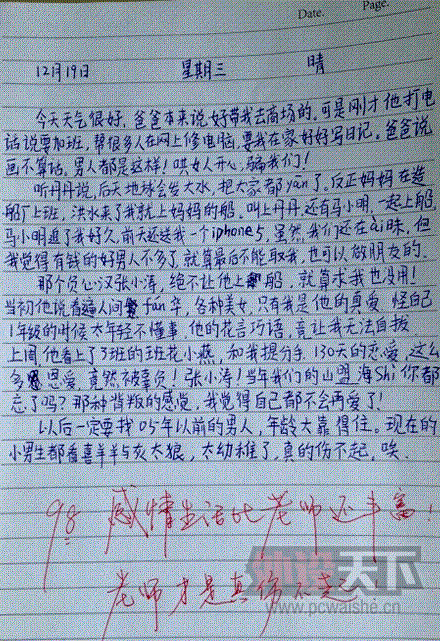 Date.
Page.
12月19日 星期三 晴
今天天气很好,爸爸本来说好带我去商场的,可是刚才他打电
话说要加班,帮很多人在网上修电脑,要我在家好好写日记。爸爸说
画不算话,男人都是这样!哄女人开心,骗我们!
听丹丹说,后天地球会发大水,把大家都yān了,反正妈妈在造
船厂上班,洪水来了我就上妈妈的船,叫上丹丹,还有马小明,一起上船,
马小明追了我好久,前天还送我一个iphone5,虽然我们还在ai昧,但
我觉得有钱的好男人不多了,就算最后不能取我,也可以做朋友的。
那个负心汉张小涛,绝不让他上船,就算求我也没用!
当初他说看遍人间fán华,各种美女,只有我是他的真爱,怪自己
1年级的时候太年轻不懂事,他的花言巧语,竟让我无法自拔
上周他看上了3班的班花小燕,和我提分手,130天的恋爱,这么
多恩爱,竟然被辜负!张小涛!当年我们的山盟海Shi你都
忘了吗?那种背叛的感觉,我觉得自己都不会再爱了!
以后一定要找05年以前的男人,年龄大靠得住。现在的
小男生都看喜羊羊与灰太狼,太幼稚了,真的伤不起,唉.
98 感情生活比老师还丰富!
老师才是真伤不起
天下
www.pcwaishe.cn